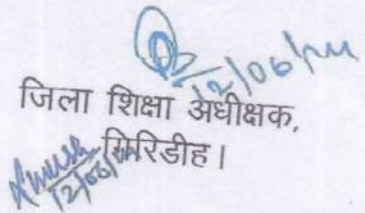 12/06/24
जिला शिक्षा अधीक्षक,
गिरिडीह।
12/06/24